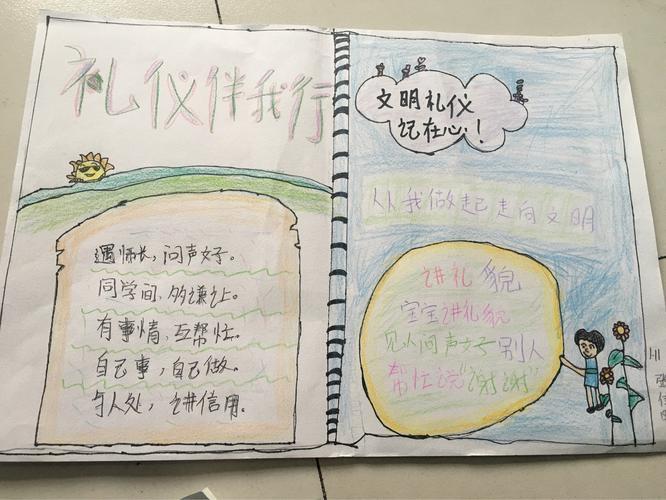 礼仪伴我行
遇师长，问声好。
同学间，多谦让。
有事情，互帮忙。
自己事，自己做。
与人处，讲信用。
文明礼仪
记在心！
从我做起走向文明
讲礼貌
宝宝讲礼貌
见人问声好 别人
帮忙说“谢谢”